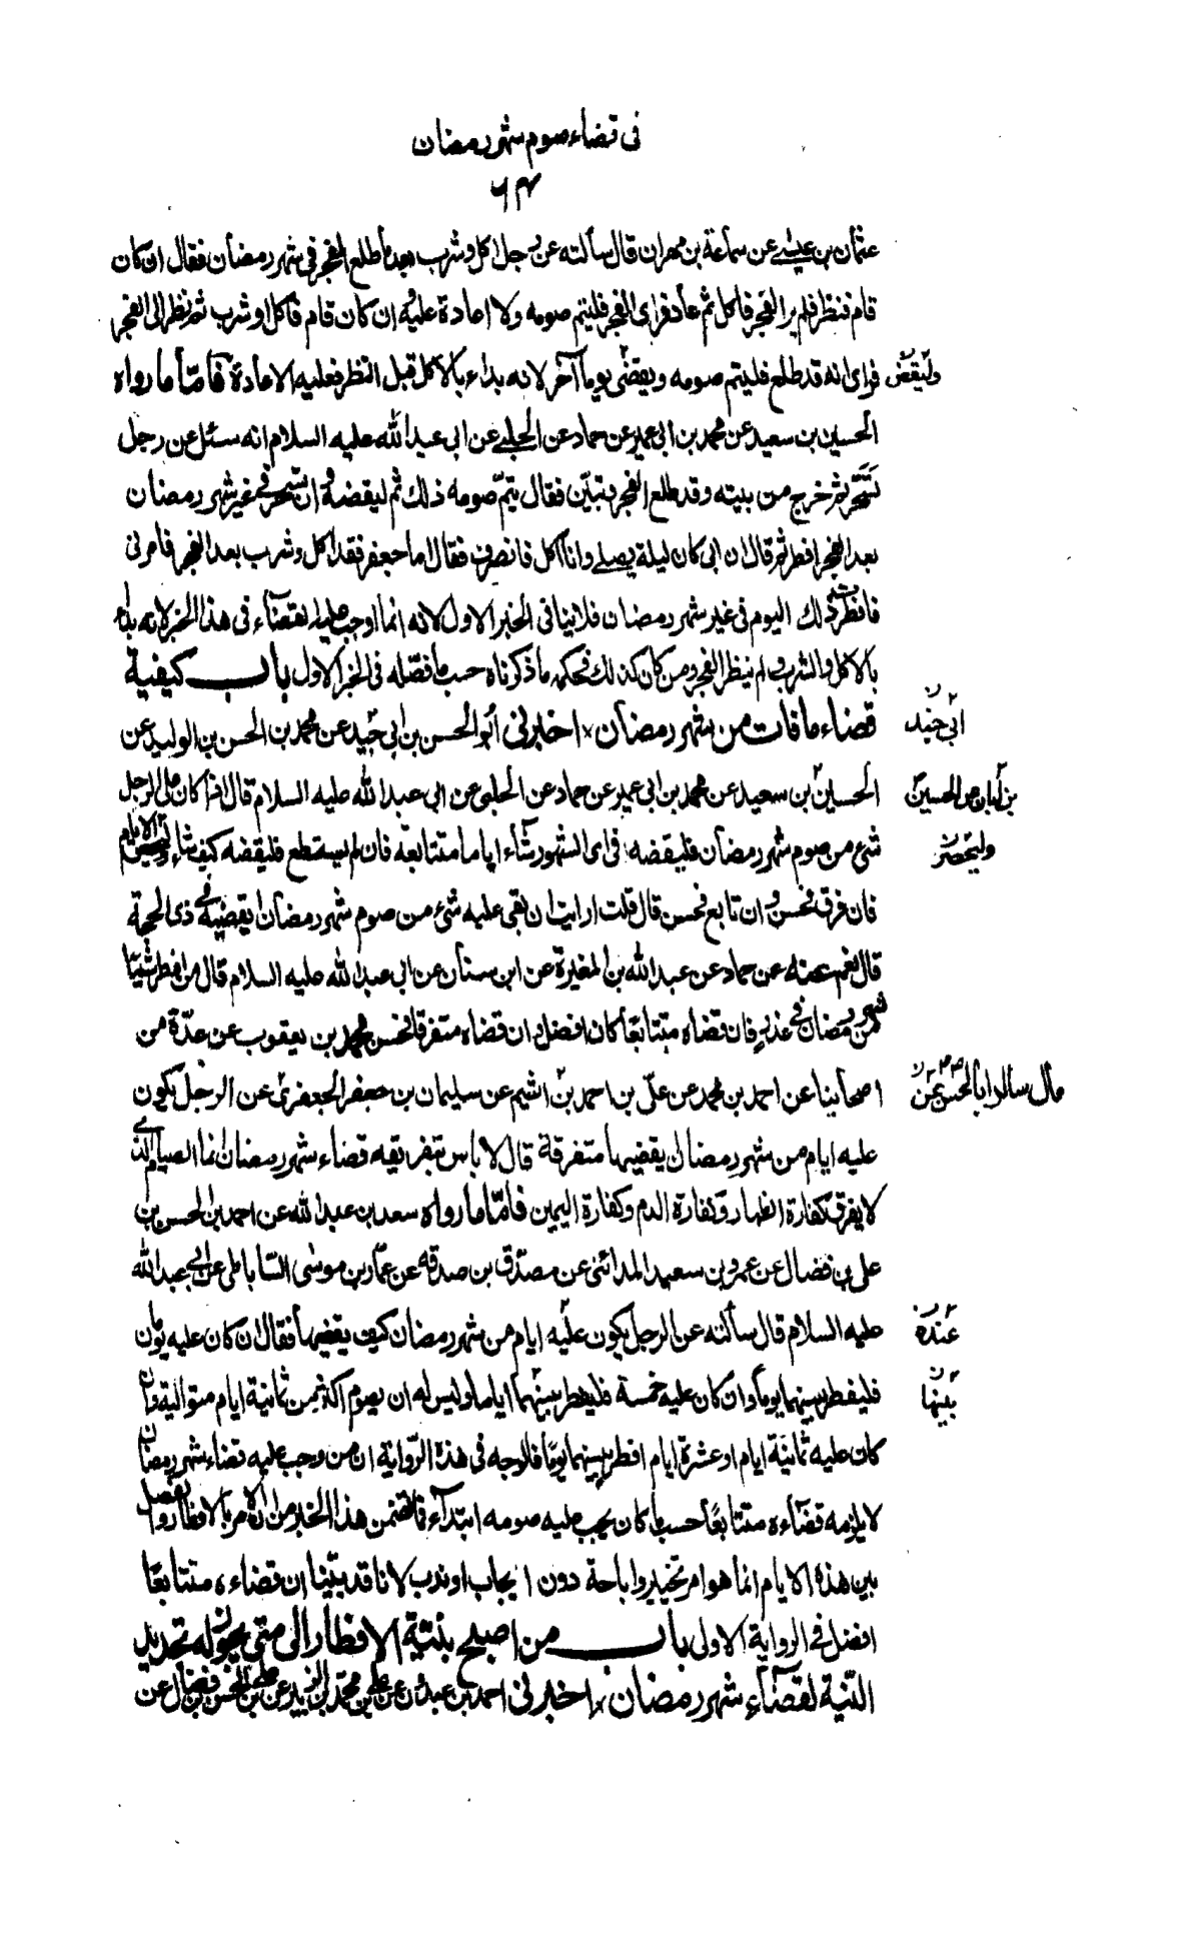 فى قضاء صوم شهر رمضان
٦٣
عثمان بن عيسى عن سماعة بن مهران قال سألته عن رجل اكل وشرب بعد ما طلع الفجر فى شهر رمضان فقال ان كان
قام فنظر فلم ير الفجر فاكل ثم عاد فراى الفجر فليتم صومه ولا اعادة عليه وان كان قام فاكل وشرب ثم نظر الى الفجر
فراى انه قد طلع فليتم صومه ويقضى يوما آخر لانه بداء بالاكل قبل النظر فعليه الاعادة فامّا ما رواه
وليقض
الحسين بن سعيد عن محمد بن ابى عمير عن حماد عن الحلبى عن ابى عبد الله عليه السلام انه سئل عن رجل
تسحّر ثم خرج من بيته وقد طلع الفجر وتبيّن فقال يتمّ صومه ذلك ثم ليقضه وان تسحر فى غير شهر رمضان
بعد الفجر افطر ثم قال ان ابى كان ليلة يصلى وانا آكل فانصرف فقال اما جعفر فقد اكل وشرب بعد الفجر فامرنى
فافطرت ذلك اليوم فى غير شهر رمضان فلا ينافى الخبر الاول لانه انما اوجب عليه القضاء فى هذا الخبر لانه بداء
بالاكل والشرب ولم ينظر الفجر ومن كان كذلك فحكمه ما ذكرناه حسب ما فصّله فى الخبر الاول باب كيفية
قضاء ما فات من شهر رمضان اخبرنى ابو الحسن بن ابى جيد عن محمد بن الحسن بن الوليد عن
ابى جيد
الحسين بن سعيد عن محمد بن ابى عمير عن حماد عن الحلبى عن ابى عبد الله عليه السلام قال اذا كان على الرجل
بن ابان عن الحسين
شىء من صوم شهر رمضان فليقضه فى اى الشهور شاء اياما متتابعة فان لم يستطع فليقضه كيف شاء وليحص الايام
وليحص
فان فرق فحسن وان تابع فحسن قال قلت ارايت ان بقى عليه شىء من صوم شهر رمضان ايقضيه فى ذى الحجة
قال نعم عنه عن حماد عن عبد الله بن المغيرة عن ابن سنان عن ابى عبد الله عليه السلام قال من افطر شيئا
من شهر رمضان فى عذر فان قضاه متتابعا كان افضل وان قضاه متفرقا فحسن محمد بن يعقوب عن عدّة من
اصحابنا عن احمد بن محمد عن علّى بن احمد بن اشيم عن سليمان بن جعفر الجعفرى عن الرجل يكون
قال سالت ابا الحسن عن
عليه ايام من شهر رمضان يقضيها متفرقة قال لا باس بتفريقه قضاء شهر رمضان انما الصيام الذى
لا يفرق كفارة الظهار وكفارة الدم وكفارة اليمين فامّا ما رواه سعد بن عبد الله عن احمد بن الحسن بن
على بن فضال عن عمرو بن سعيد المدائنى عن مصدّق بن صدقه عن عمّار بن موسى الساباطى عن ابى عبد الله
عليه السلام قال سألته عن الرجل يكون عليه ايام من شهر رمضان كيف يقضيها فقال ان كان عليه يومان
فليفطر بينهما يوما وان كان عليه خمسة فليفطر بينهما اياما وليس له ان يصوم اكثر من ثمانية ايام متوالية وان
بينها
كان عليه ثمانية ايام او عشرة ايام افطر بينهما يوما فالوجه فى هذه الرّواية ان من وجب عليه قضاء شهر رمضان
لا يلزمه قضاءه متتابعا حسب ما كان يجب عليه صومه ابتداء فما تضمن هذا الخبر من الامر بالافطار والفصل
بين هذه الايام انما هو امر تخيير واباحة دون ايجاب او ندب لانا قد بيّنا ان قضاءه متتابعا
افضل فى الرواية الاولى باب من اصبح بنيّة الافطار الى متى يجوز له تجديد
النّية لقضاء شهر رمضان اخبرنى احمد بن عبدون عن على بن محمد بن الزبير عن على بن الحسن بن فضال عن